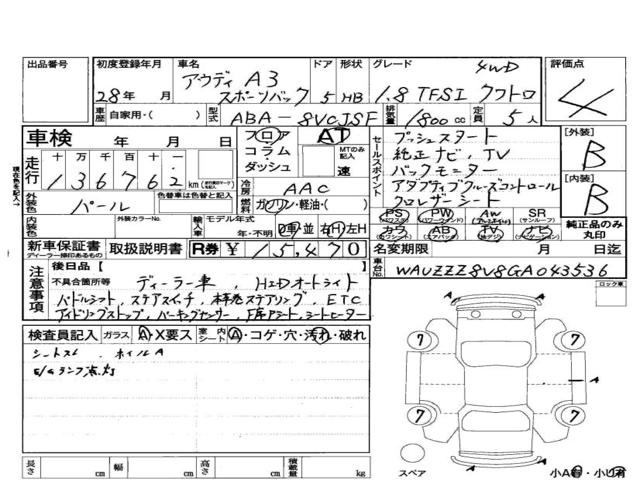 出品番号 初度登録年月 車名 ドア 形状 グレード 4WD 評価点
アウディ A3
28年 月 スポーツバック 5 HB 1.8 TFSI クワトロ 4
車歴 自家用・( ) 型式 ABA-8VCJSF 排気量 1800cc 定員 5人
車検 年 月 日 フロア AT セールスポイント プッシュスタート 【外装】
走行 十 万 千 百 十 一 コラム MTのみ記入 純正ナビ、TV B
136762 km ダッシュ 速 バックモニター
冷房 AAC アダプティブクルーズコントロール 【内装】
外装色 パール 色替車は色替と記入 燃料 ガソリン・軽油・( ) クロレザーシート B
内装色 外装カラーNo. 輸入車 モデル年式 PS PW AW SR
年・不明 D車 並 右H 左H カワ AB TV ナビ 純正品のみ丸印
新車保証書 取扱説明書 R券 ¥15,470 名変期限 月 日迄
ディーラー捺印あるもの
車台No. WAUZZZ8V8GA043536
注意事項 後日品【 ロック車
不具合箇所等 ディーラー車、HIDオートライト
パドルシフト、ステアスイッチ、本革巻ステアリング、ETC
アイドリングストップ、パーキングセンサー、F席Pシート、シートヒーター
検査員記入 ガラス A・X要ス 室内シート A・コゲ・穴・汚れ・破れ
シートスレ ホイルA
E/Gランプ点灯
A
7 7
A
7 7
A
長さ cm 幅 cm 高さ cm 積載量 kg スペア 小A有・小U有
現在色を記入→